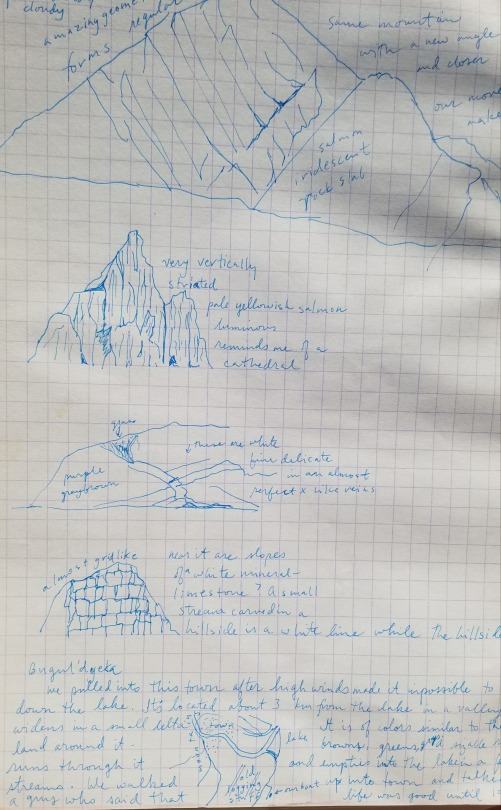 cloudy
amazing geome
forms regular
same mountain
with a new angle
and closer
our move
make
salmon
iridescent
rock slab
very vertically
striated
pale yellowish salmon
luminous
reminds me of a
cathedral
these are white
fine delicate
in an almost
perfect x like veins
purple
greybrown
almost gridlike
near it are slopes
of a white mineral-
limestone? A small
stream carved in a
hillside is a white line while the hillside
Bugul'deyka
We pulled into this town after high winds made it impossible to
down the lake. It's located about 3 km from the lake in a valley
widens in a small delta
town
lake
It is of colors similar to the
land around it.
browns, greens,
runs through it
and empties into the lake in a
streams. We walked
old
logging
up into town and talke
a guy who said that
life was good until